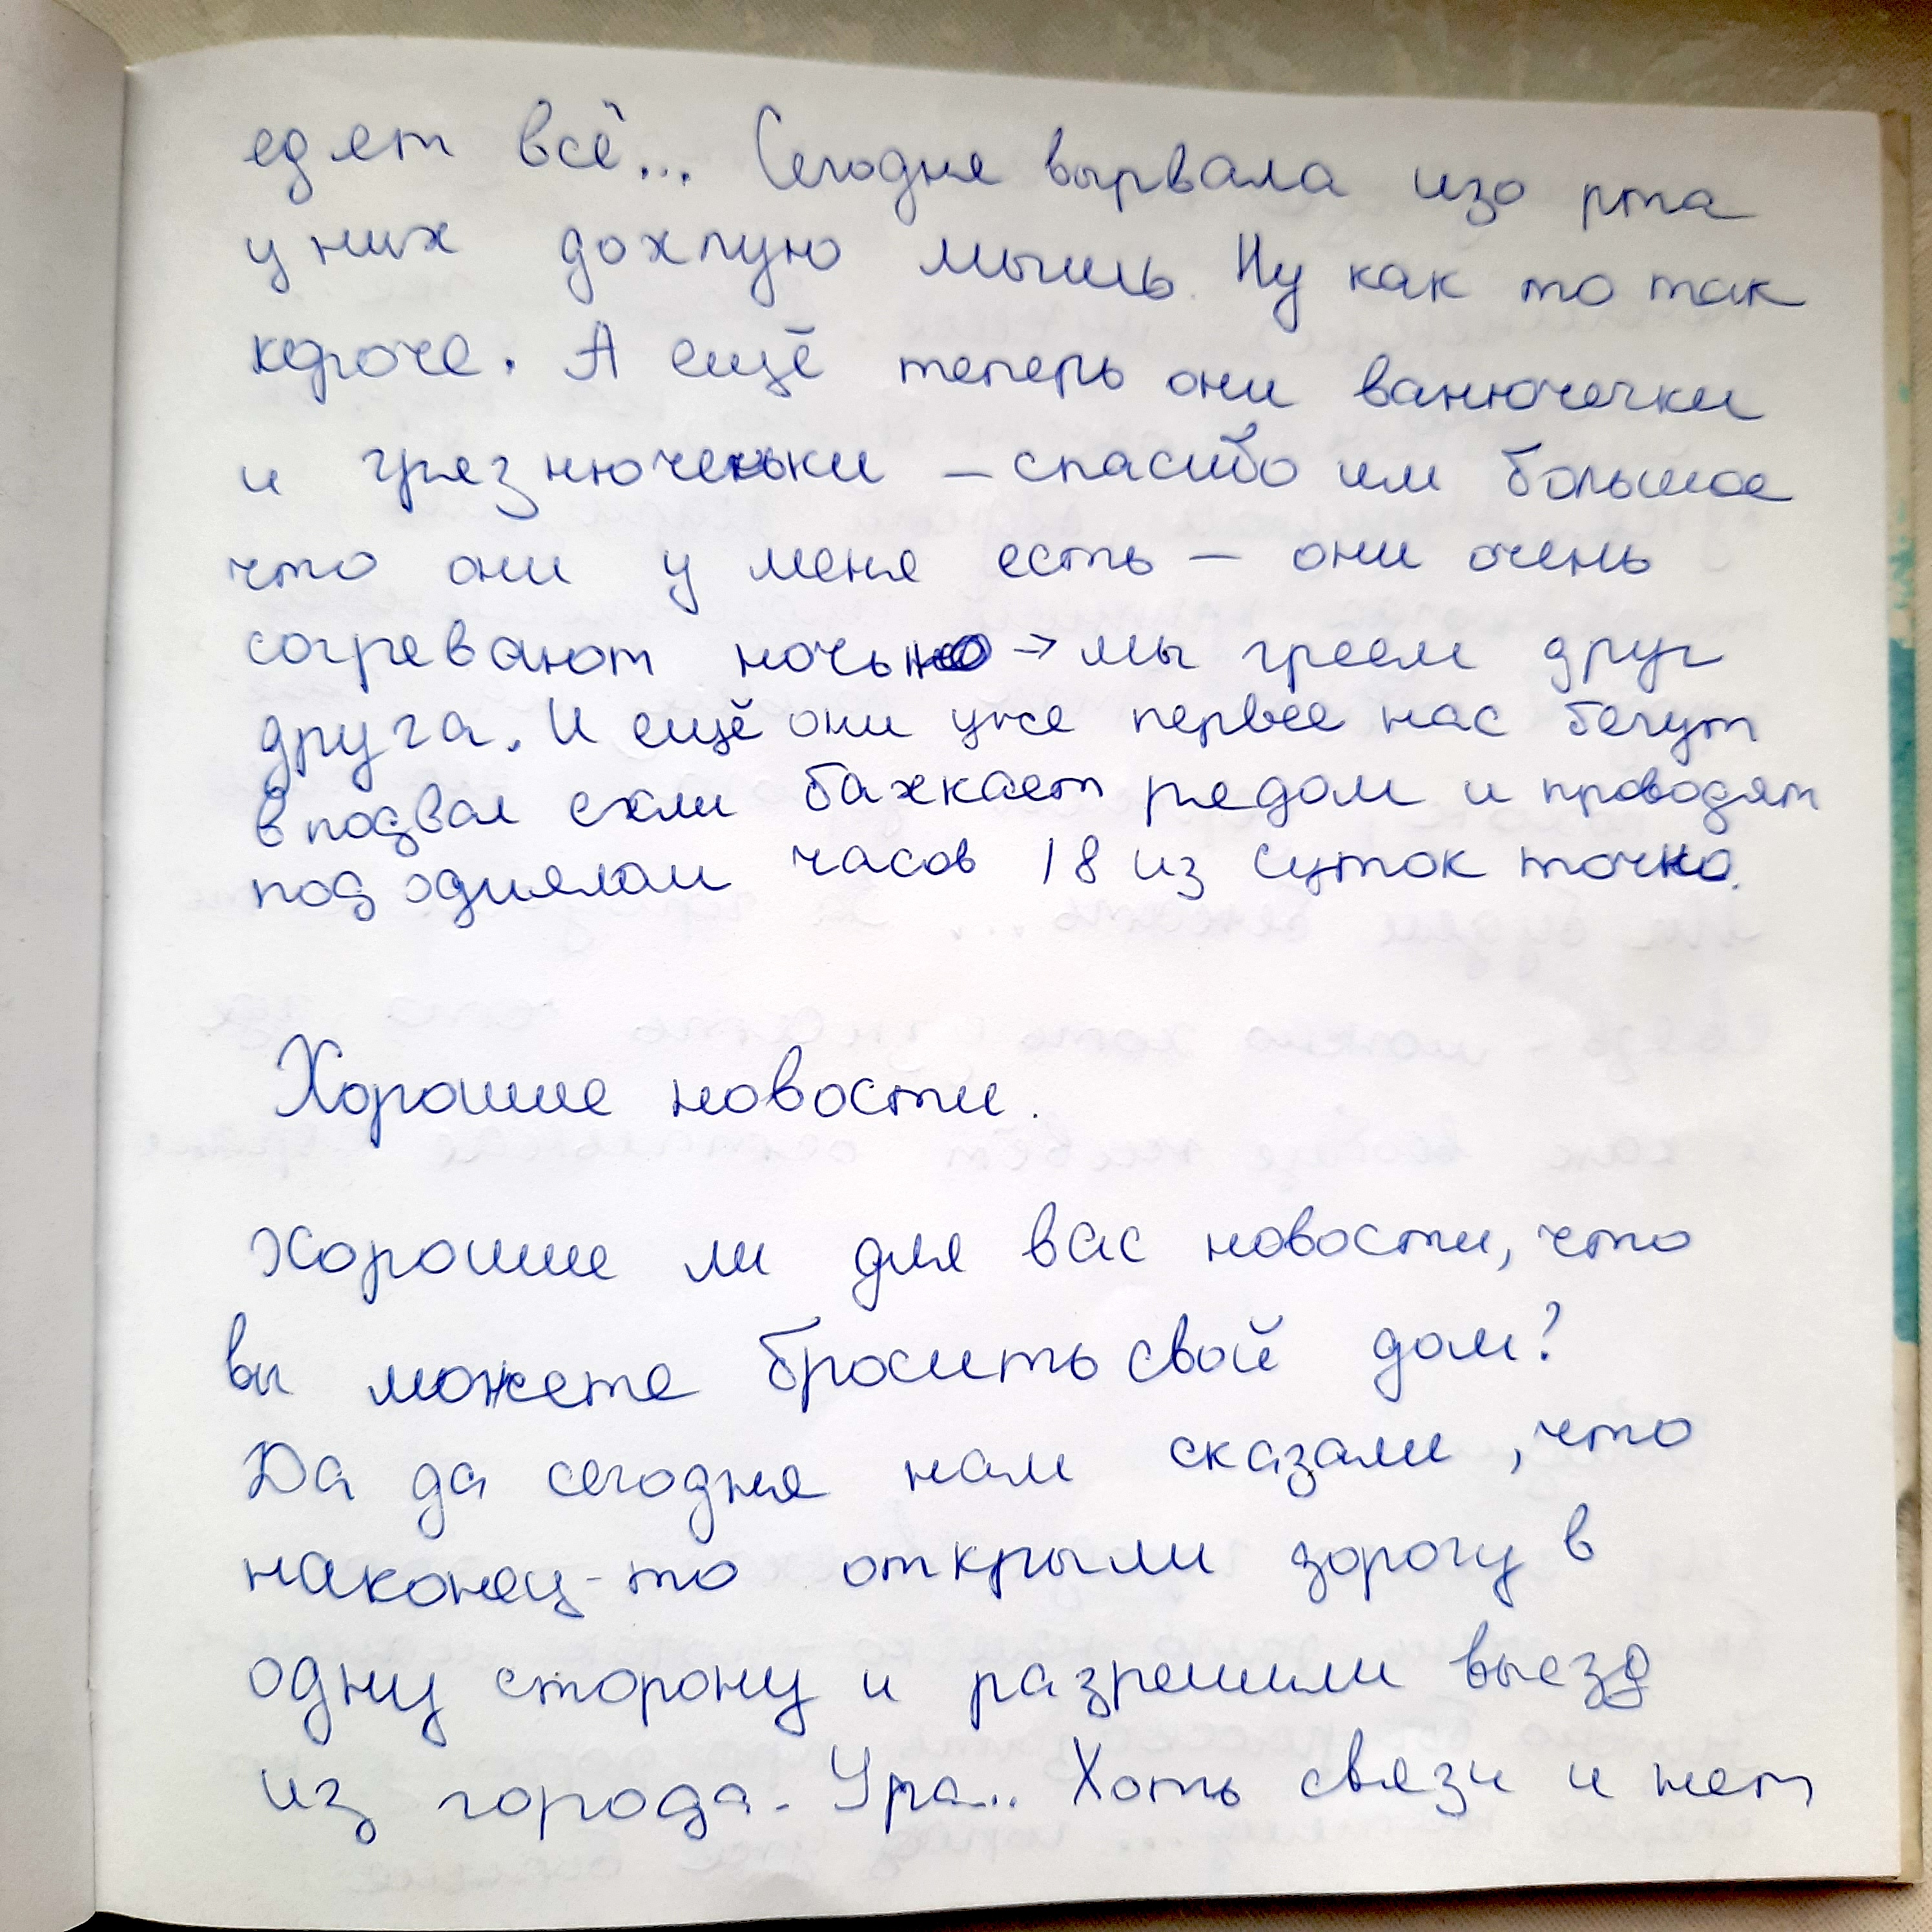 едят всё... Сегодня вырвала изо рта
у них дохлую мышь. Ну как то так
короче. А ещё теперь они ванючечки
и грязнюченьки – спасибо им большое
что они у меня есть – они очень
согревают ночью → мы греем друг
друга. И ещё они уже первее нас бегут
в подвал если бахкает рядом и проводят
под одиялом часов 18 из суток точно.
Хорошие новости.
Хорошие ли для вас новости, что
вы можете бросить свой дом?
Да да сегодня нам сказали, что
наконец-то открыли дорогу в
одну сторону и разрешили выезд
из города. Ура... Хоть связи и нет